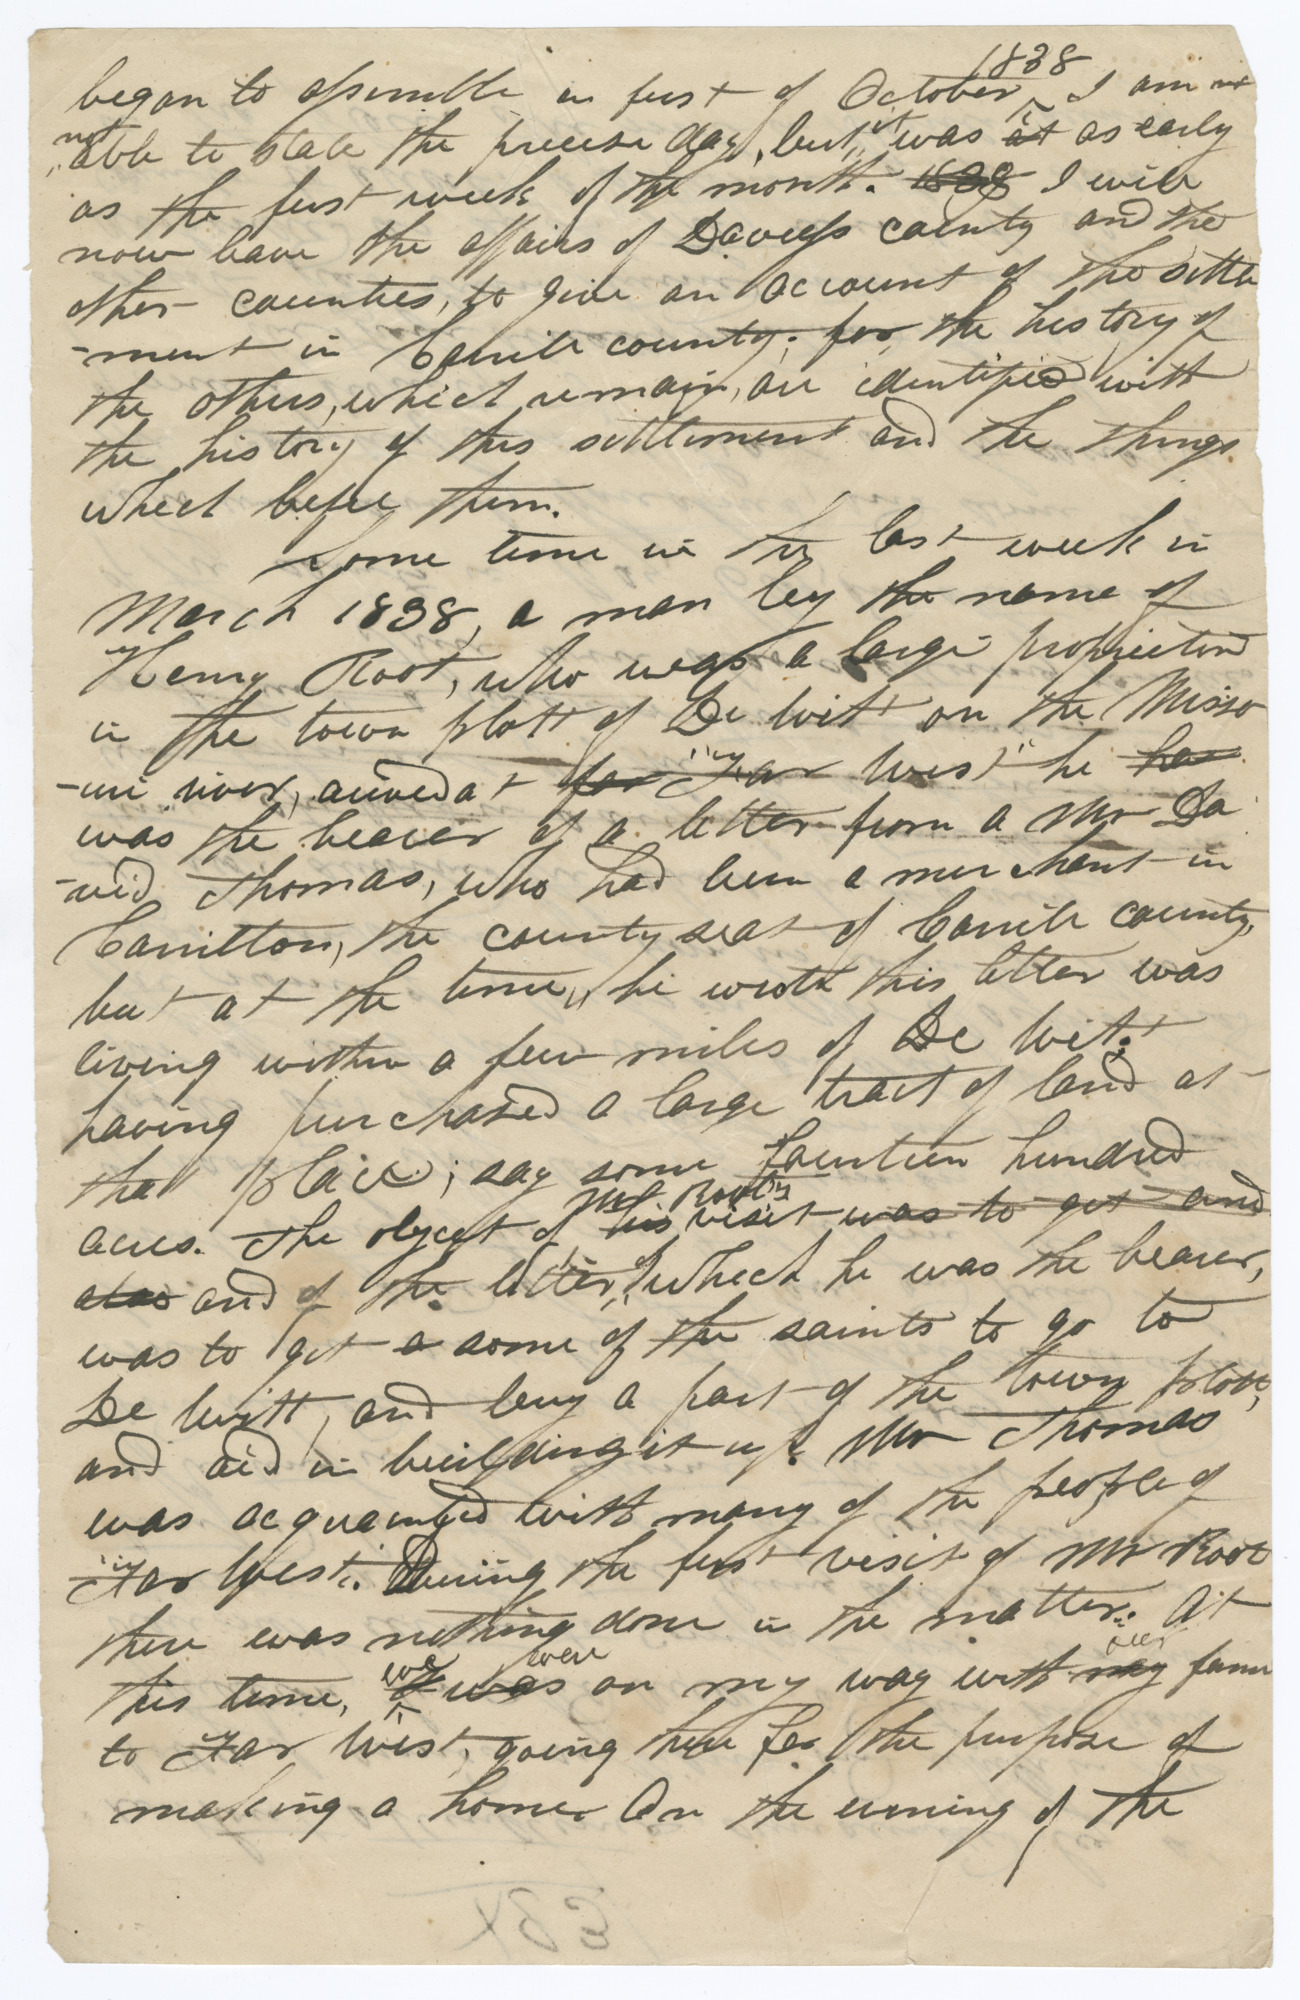 began to assemble in first of October 1838 I am not
not able to state the precise day, but it was at as early
as the first week of the month. 1838 I will
now leave the affairs of Daviess county and the
other counties, to give an account of the settle
-ment in Carrill county; for, the history of
the others, which remain, are identified with
the history of this settlement and the things
which befel them.
Some time in the last week in
March 1838, a man by the name of
Henry Root, who was a large proprietor
in the town plott of De Witt on the Misso
-uri river, arived at far "Far West" he ha
was the bearer of a letter from a Mr Da
-vid Thomas, who had been a merchant in
Carrilton, the county seat of Carrill county,
but at the time, he wrote this letter was
living within a few miles of De Witt;
having purchased a large tract of land at
that place; say some fourteen hundred
acres. The object of his Mr Root's visit was to get and
also and of the letter, of which he was the bearer,
was to get a some of the saints to go to
De Witt, and buy a part of the town plott,
and aid in building it up. Mr Thomas
was acquainted with many of the people of
"Far West". During the first visit of Mr Root
there was nothing done in the matter. At
this time, I we was were on my way with my our famil
to Far West, going there for the purpose of
making a home. On the evening of the